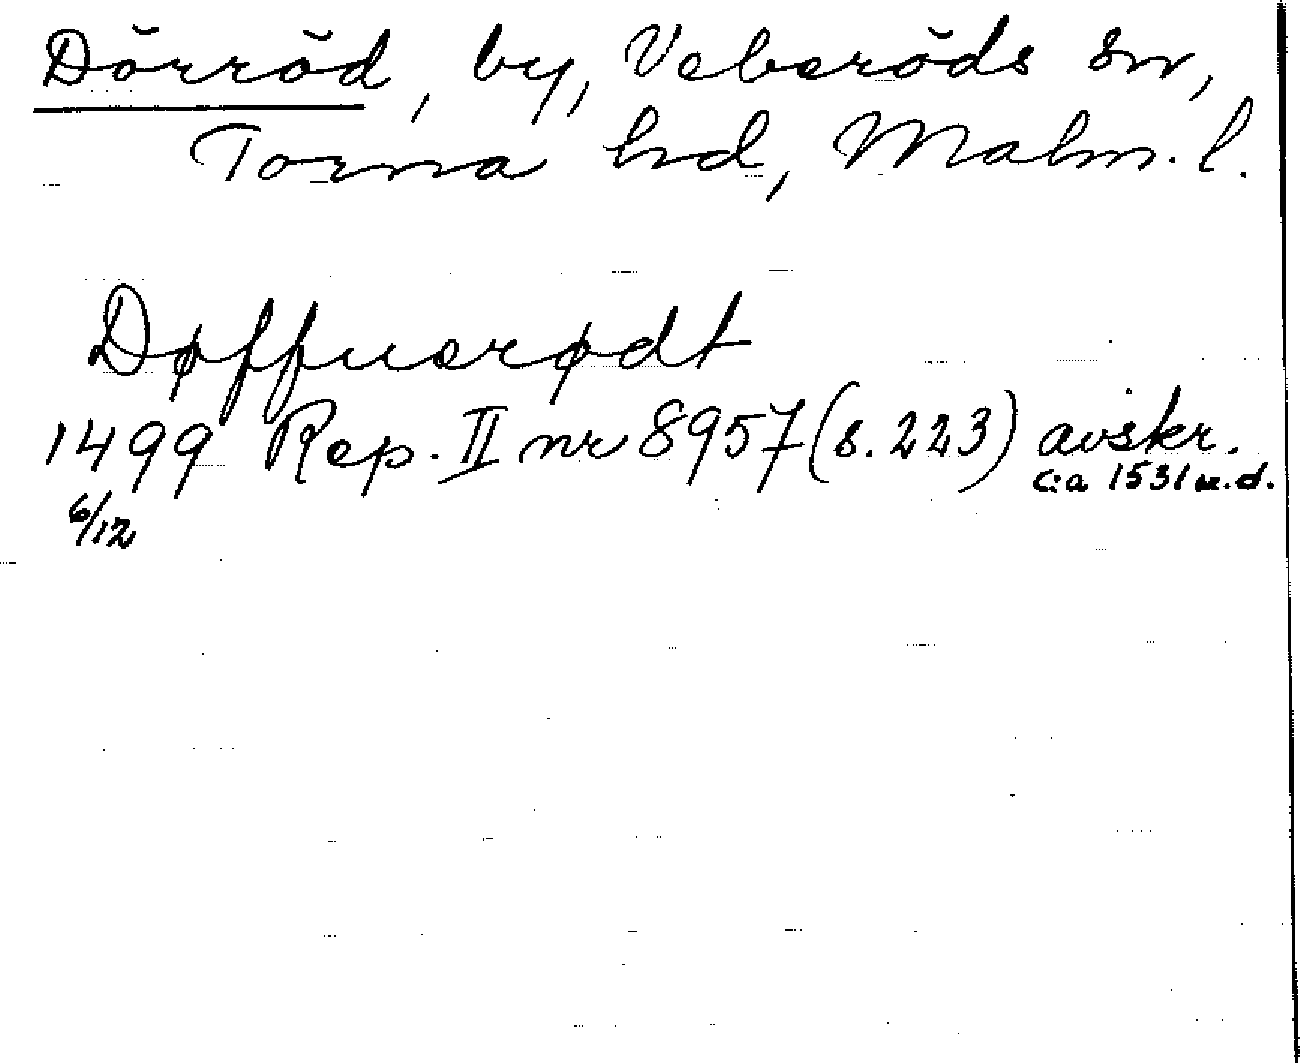 Dörröd, by, Veberöds sn,
Torna hd, Malm. l.
Døffuerødt
1499 Rep. II nr 8957 (s. 223) avskr.
c:a 1531 u.d.
6/12